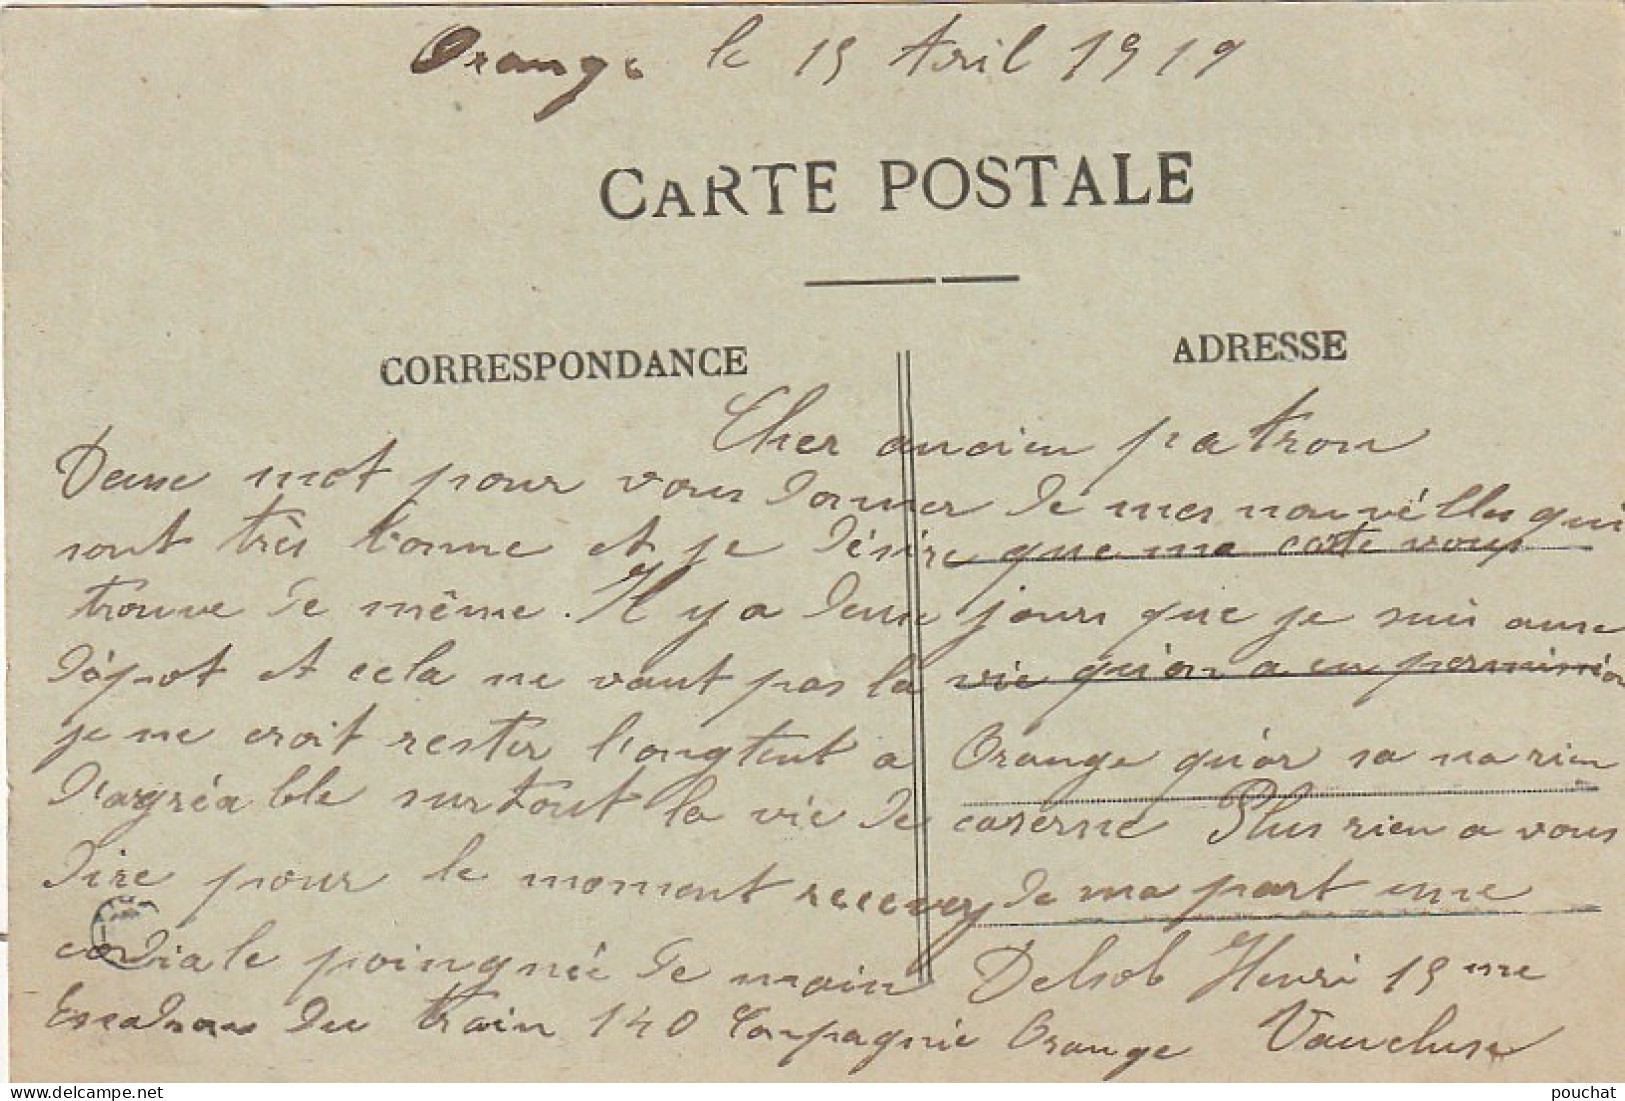 Orange le 15 Avril 1919
CARTE POSTALE
CORRESPONDANCE
ADRESSE
Cher ancien patron
Deux mot pour vous donner de mes nouvelles qui
sont très bonne et je désire que ma carte vous
trouve de même. Il y a deux jours que je suis aux
dépot et cela ne vaut pas la vie qu'on a en permission
je ne croit rester longtent a Orange qu'ar sa na rien
d'agréable surtout la vie de caserne Plus rien a vous
dire pour le moment recevez de ma part une
cordiale poingnée de main Delsob Henri 15 me
Escadron du train 140 Compagnie Orange Vaucluse
pouchat